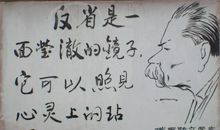 反省是一
面莹澈的镜子,
它可以照見
心灵上的玷